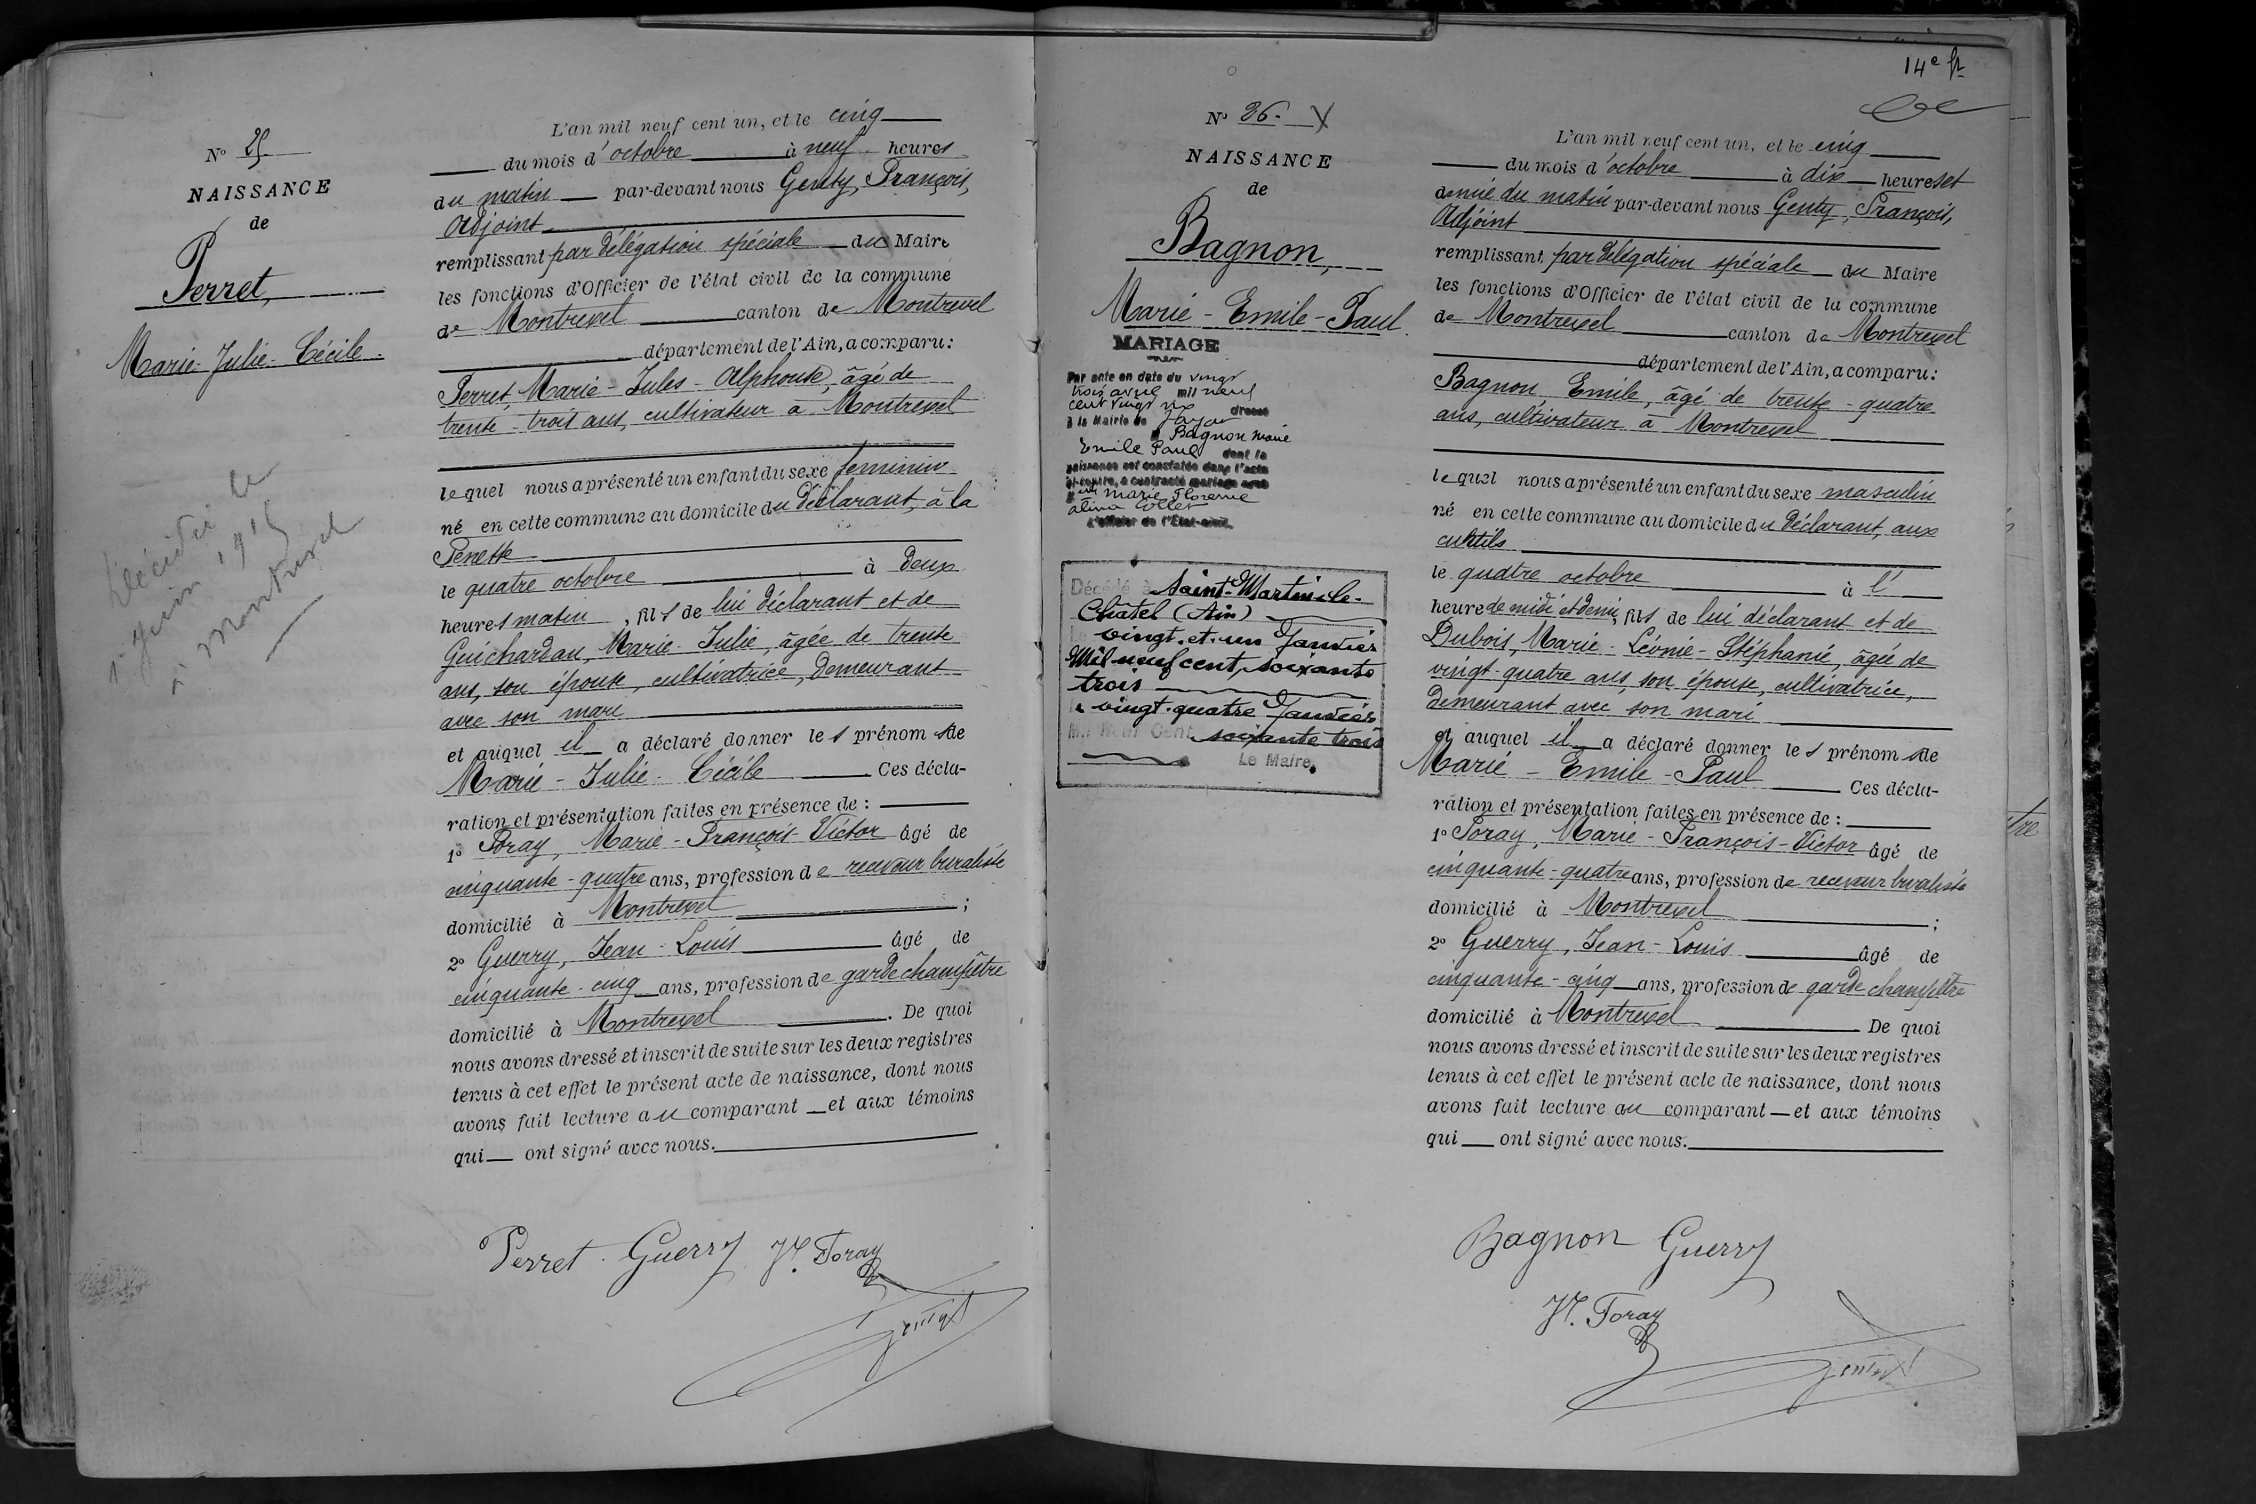 N° 25
NAISSANCE
de
Perret,
Marie-Julie-Cécile.
Décédée le
1er juin 1915
à Montrevel
L'an mil neuf cent un, et le cinq
du mois d'octobre à neuf heures
du matin par-devant nous Genty, François,
Adjoint
remplissant par délégation spéciale du Maire
les fonctions d'Officier de l'état civil de la commune
de Montrevel canton de Montrevel
département de l'Ain, a comparu:
Perret, Marie-Jules-Alphonse, âgé de
trente-trois ans, cultivateur à Montrevel
lequel nous a présenté un enfant du sexe féminin
né en cette commune au domicile du déclarant, à la
le quatre octobre à deux
heures matin, fils de lui déclarant et de
Guichardan, Marie-Julie, âgée de trente
ans, son épouse, cultivatrice, demeurant
avec son mari
et auquel il a déclaré donner les prénoms de
Marie-Julie-Cécile Ces décla-
ration et présentation faites en présence de:
1° Foray, Marie-François-Victor âgé de
cinquante-quatre ans, profession de receveur buraliste
domicilié à Montrevel;
2° Guerry, Jean-Louis âgé de
cinquante-cinq ans, profession de garde champêtre
domicilié à Montrevel. De quoi
nous avons dressé et inscrit de suite sur les deux registres
tenus à cet effet le présent acte de naissance, dont nous
avons fait lecture au comparant et aux témoins
qui ont signé avec nous.
Perret Guerry V. Foray
Genty
14e ft
N° 26. X
NAISSANCE
de
Bagnon,
Marie-Emile-Paul
MARIAGE
Par acte en date du vingt
trois avril mil neuf
cent vingt six dressé
à la Mairie de Jayat
M Bagnon Marie
Emile Paul dont la
naissance est constatée dans l'acte
ci-contre, a contracté mariage avec
Marie Florence
L'officier de l'Etat-civil,
Décédé à Saint-Martin-le-
Châtel (Ain)
vingt-et-un Janvier
Mil neuf cent soixante
trois
le vingt-quatre Janvier
Mil Neuf Cent soixante trois
Le Maire,
L'an mil neuf cent un, et le cinq
du mois d'octobre à dix heures et
demie du matin par-devant nous Genty, François,
Adjoint
remplissant par délégation spéciale du Maire
les fonctions d'Officier de l'état civil de la commune
de Montrevel canton de Montrevel
département de l'Ain, a comparu:
Bagnon, Emile, âgé de trente-quatre
ans, cultivateur à Montrevel
lequel nous a présenté un enfant du sexe masculin
né en cette commune au domicile du déclarant, aux
le quatre octobre à l'
heure de midi et demie, fils de lui déclarant et de
Dubois, Marie-Léonie-Stéphanie, âgée de
vingt-quatre ans, son épouse, cultivatrice,
demeurant avec son mari
et auquel il a déclaré donner les prénoms de
Marie-Emile-Paul Ces décla-
ration et présentation faites en présence de:
1° Foray, Marie-François-Victor âgé de
cinquante-quatre ans, profession de receveur buraliste
domicilié à Montrevel;
2° Guerry, Jean-Louis âgé de
cinquante-cinq ans, profession de garde champêtre
domicilié à Montrevel De quoi
nous avons dressé et inscrit de suite sur les deux registres
tenus à cet effet le présent acte de naissance, dont nous
avons fait lecture au comparant et aux témoins
qui ont signé avec nous.
Bagnon Guerry
V. Foray
Genty